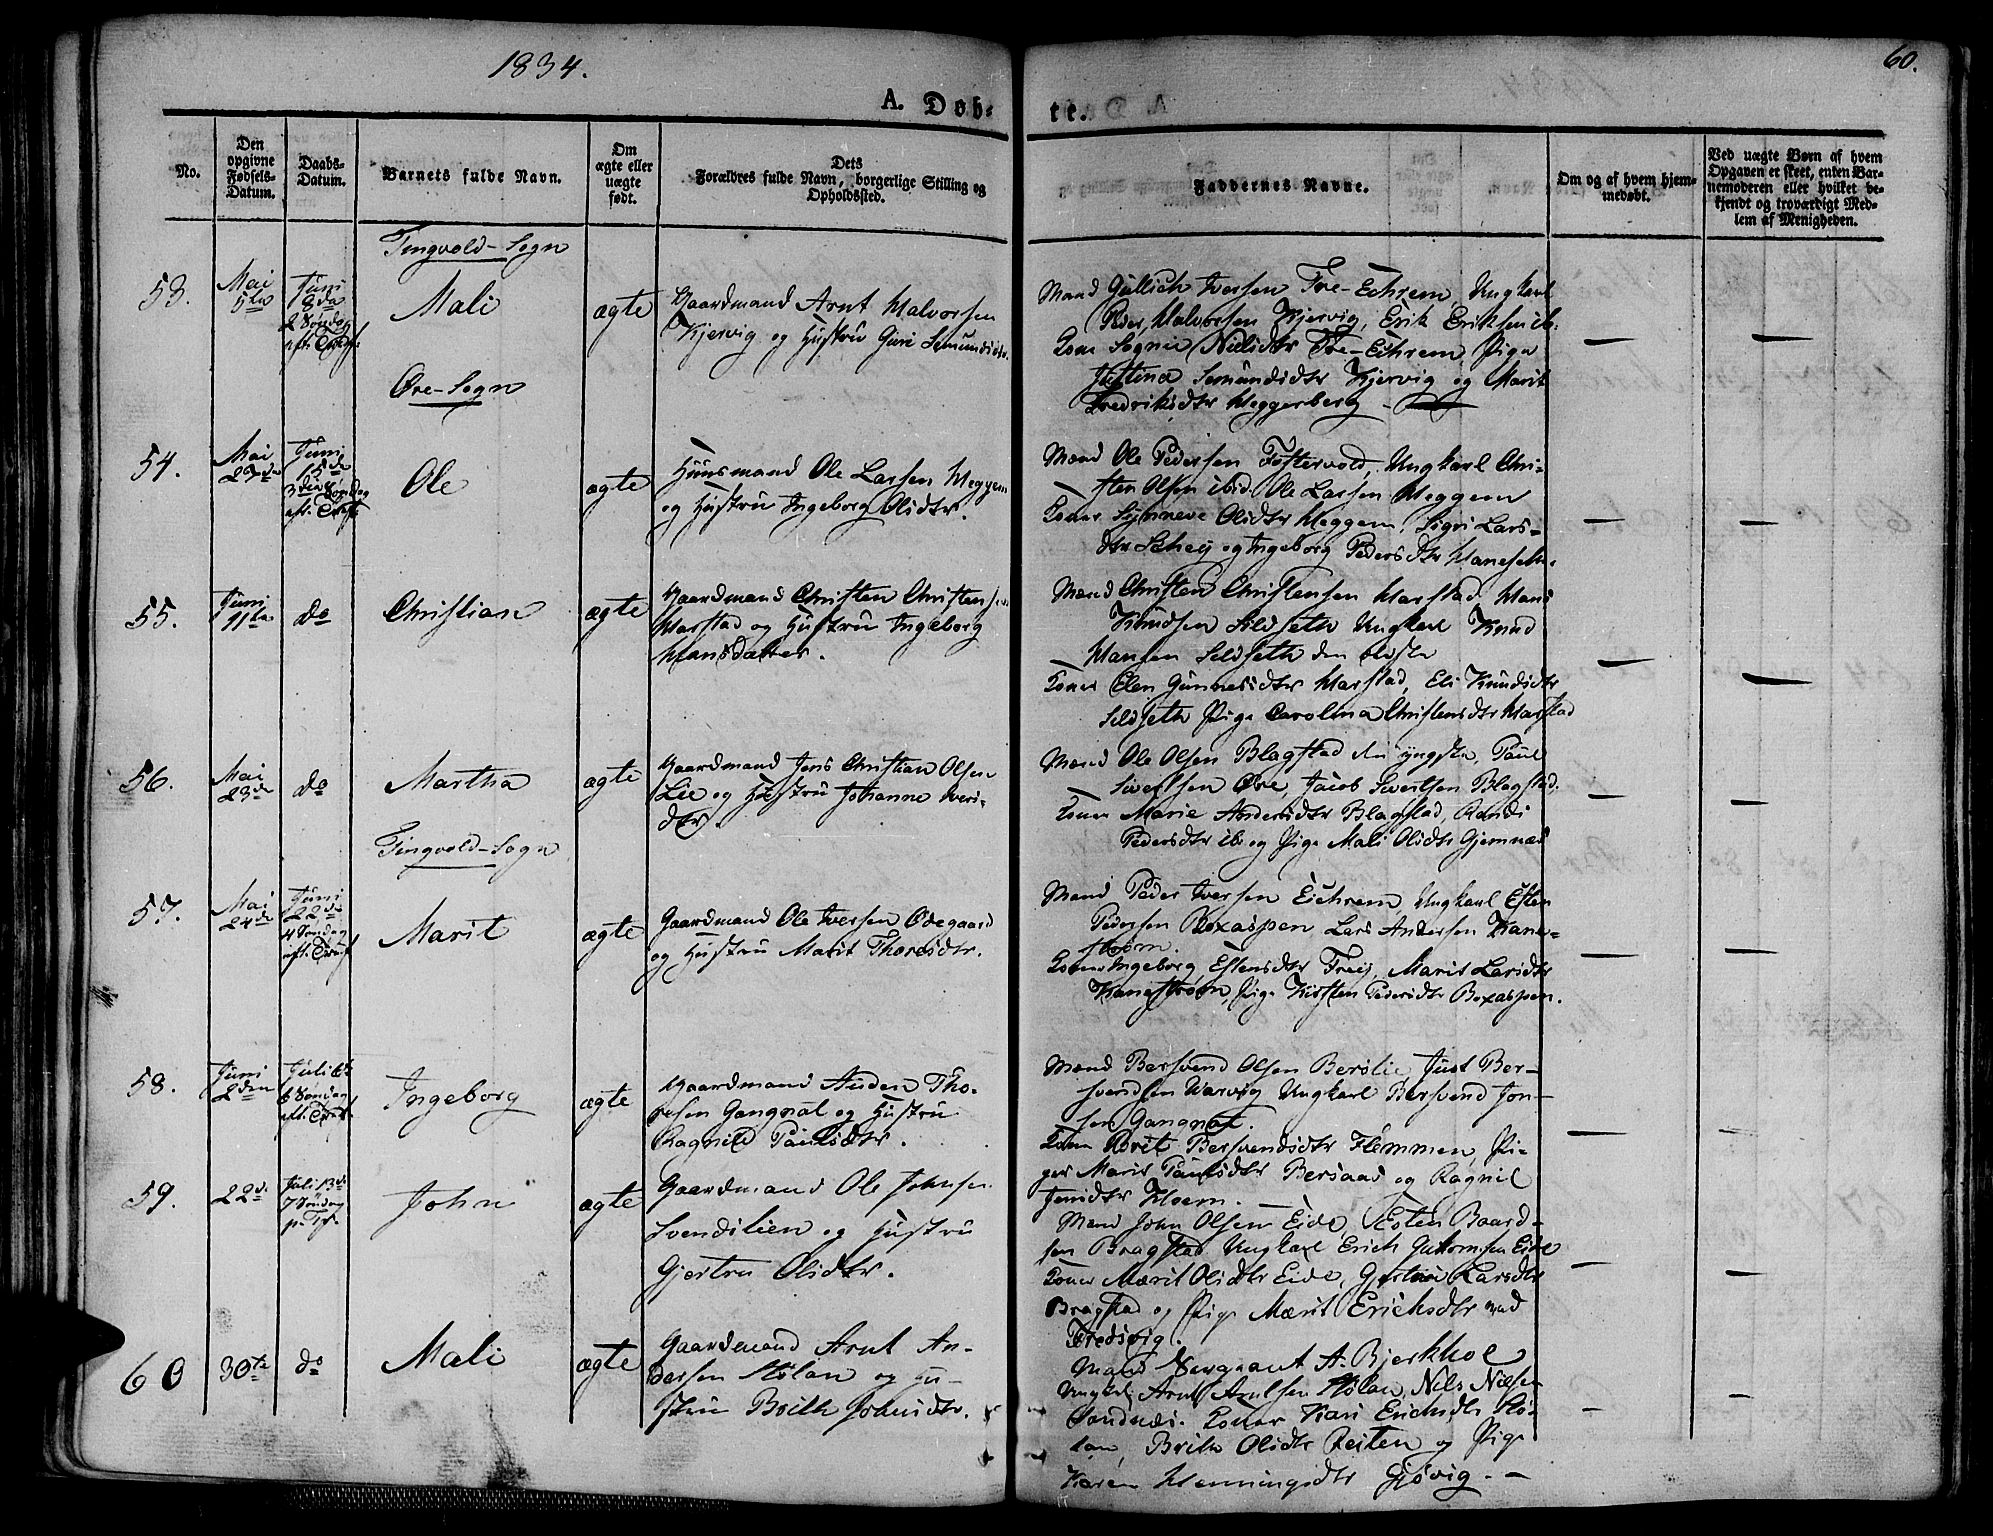 1834.
60.
A. Døb-
te.
No.
Den opgivne Fødsels-Datum.
Daabs-Datum.
Barnets fulde Navn.
Om ægte eller uægte født.
Dets Forældres fulde Navn, borgerlige Stilling og Opholdssted.
Faddernes Navne.
Om og af hvem hjemmedøbt.
Ved uægte Børn af hvem Opgaven er skeet, enten Barnemoderen eller hvilket bekjendt og troværdigt Medlem af Menigheden.
Tingvold-Sogn
53.
Mai
5te
Juni
8da
2 Søndag
eft. Trinit.
Mali
ægte
Gaardmand Arnt Halvorsen
Kjervig og Hustru Guri Semundsdtr
Mænd Gullich Iversen Fre-Echrem, Ungkarl
Peder Halvorsen Kjervig, Erik Eriksen ib.
Kone Sognie Nielsdtr Fre-Eichrem Pige
Justina Semundsdtr Kjervig og Marit
Fredriksdtr Heggerberg
Øre-Sogn
54.
Mai
23de
Juni
15de
3die Søndag
eft. Trinit.
Ole
ægte
Huusmand Ole Larsen Heggem
og Hustru Ingeborg Olsdtr.
Mænd Ole Pedersen Fostervold, Ungkarl Chri-
sten Olsen ibid. Ole Larsen Heggem
Koner Synneve Olsdtr Heggem, Sigri Lars-
dtr Schey og Ingeborg Pedersdtr Haneseth.
55.
Juni
11te
do
Christian
ægte
Gaardmand Christen Christensen
Harstad og Hustru Ingeborg
Hansdatter.
Mænd Christen Christensen Harstad. Hans
Knudsen Sildseth Ungkarl Knud
Hansen Seldseth den eldste
Koner Elen Gunnersdtr Harstad, Eli Knudsdtr
Seldseth Pige Carolina Christensdtr Harstad
56.
Mai
23de
do
Martha
ægte
Gaardmand Jens Christian Olsen
Lie og Hustru Johanne Iveri-
dtr.
Mænd Ole Olsen Blagstad den yngste, Paul
Sivertsen Øre, Jacob Sivertsen Blagstad.
Koner Marie Andersdtr Blagstad, Randi
Pedersdtr ib og Pige Mali Olsdtr Gjemnæs
Tingvold-Sogn
57.
Mai
24de
Juni
22de
4 Søndag
eft. Trinit.
Marit
ægte
Gaardmand Ole Iversen Ødegaard
og Hustru Marit Thoresdtr.
Mænd Peder Iversen Eichrem, Ungkarl Esten
Pedersen Boxaspen, Lars Andersen Kane-
strøm.
Koner Ingeborg Estensdtr Frey, Marit Larsdtr
Kanestrøm, Pige Kirsten Pedersdtr Boxaspen.
58.
Juni
2den
Juli 6te
6 Søndag
eft. Trinit.
Ingeborg
ægte
Gaardmand Auden Tho-
resen Gangnat og Hustru
Ragnild Paulsdtr.
Mænd Bersvend Olsen Berslie, Just Ber-
svendsen Warvig Ungkarl Bersvend Jon-
sen Gangnat.
Kone Borit Bersvendsdtr Flemmen, Pi-
ger Marit Paulsdtr Bersaas og Ragnil
Jensdtr Hoem.
59.
22de
Juli 13de
7 Søndag
John
ægte
Gaardmand Ole Johnsen
Svendslien og Hustru
Gjertru Olsdtr.
Mænd John Olsen Eide, Esten Baard-
sen Bragstad Ungkarl Erich Guttormsen Eide
Koner Marit Olsdtr Eide, Gjertrue Larsdtr
Bragstad og Pige Marit Erichsdtr ved
Fredsvig.
60
30te
do
Mali
ægte
Gaardmand Arnt An-
dersen Stølan og Hu-
stru Brith Johnsdtr.
Mænd Sergeant A. Bjerkhoe
Ungkl. Arnt Arntsen Stølan, Nils Nilsen
Sandnæs. Koner Kari Erichsdtr Stø-
lan, Brith Olsdtr Reiten og Pige
Karen Henningsdtr Gjøvig.